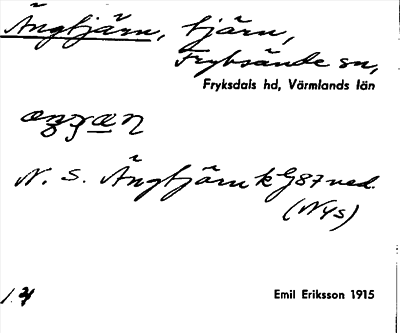 Ängtjärn, tjärn,
Fryksände sn,
Fryksdals hd, Värmlands län
N. S. Ängtjärn k G87 ned.
(Nys)
Emil Eriksson 1915